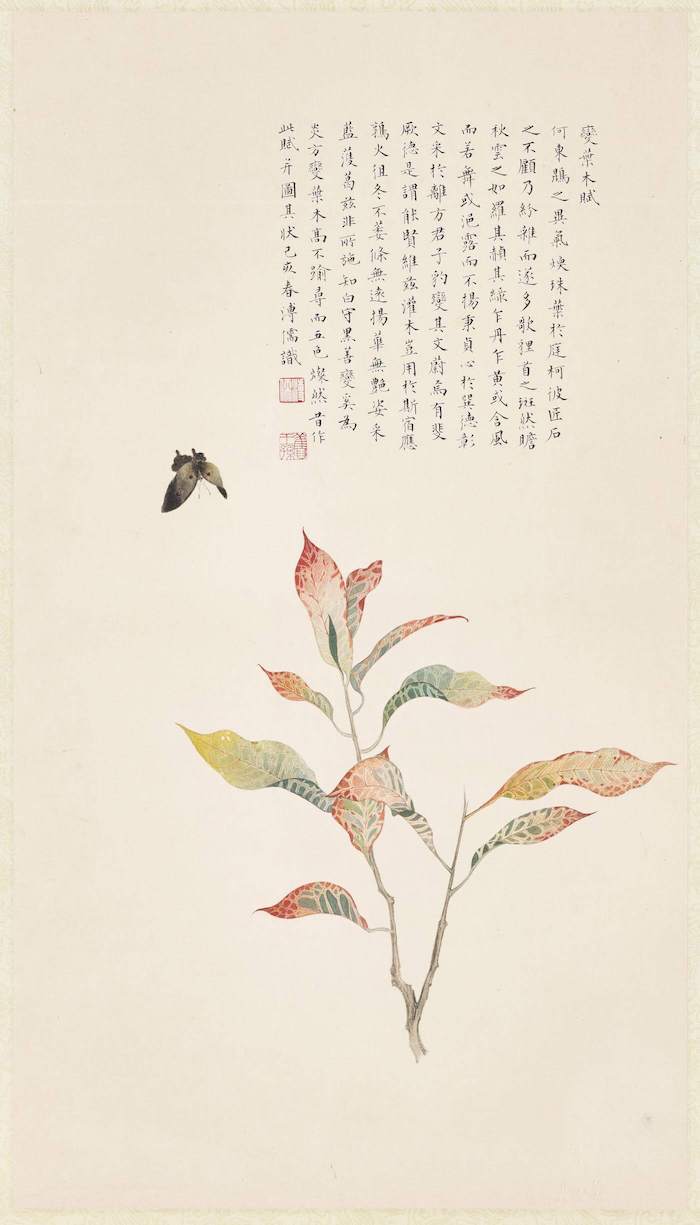 變葉木賦
何東鵾之異氣煥珠葉於庭柯彼匠石
之不顧乃紛雜而遂多歌貍首之斑然瞻
秋雲之如羅其赬其綠乍丹乍黃或含風
而若舞或浥露而不揚秉貞心於巽德彰
文采於離方君子豹變其文蔚焉有斐
厥德是謂能賢維茲灌木豈用於斯宿應
鶉火徂冬不萎條無遠揚華無艷姿采
藍蒦葛茲非所施知白守黑善變奚為
炎方變葉木高不踰尋而五色燦然昔作
此賦并圖其狀己亥春溥儒識